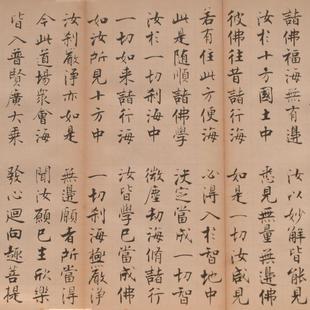 諸佛福海無有邊　汝以妙解皆能見
汝於十方國土中　悉見無量無邊佛
彼佛往昔諸行海　如是一切汝咸見
若有住此方便海　必得入於智地中
此是隨順諸佛學　決定當成一切智
汝於一切剎海中　微塵劫海修諸行
一切如來諸行海　汝皆學已當成佛
如汝所見十方中　一切剎海極嚴淨
汝剎嚴淨亦如是　無邊願者所當得
今此道場衆會海　聞汝願已生欣樂
皆入普賢廣大乘　發心迴向趣菩提